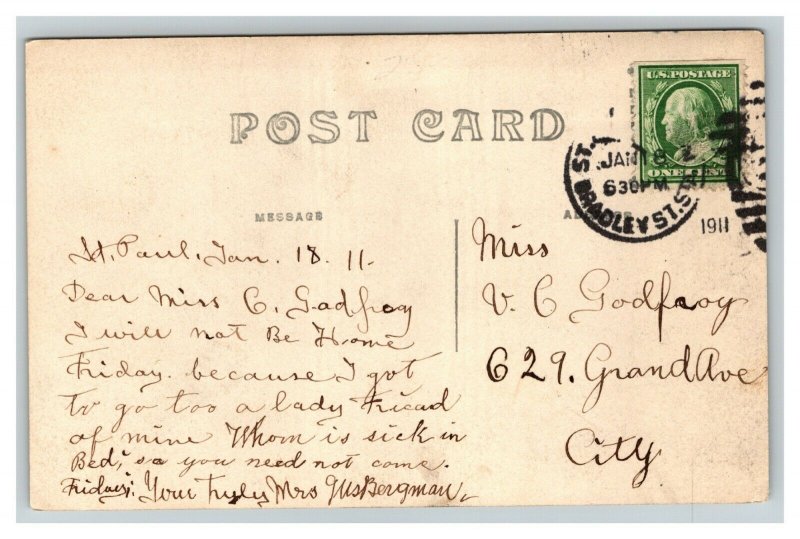 POST CARD
U.S. POSTAGE
ONE CENT
ST.
JAN 18
630PM
BRADLEY ST. STA
1911
MESSAGE
St. Paul, Jan. 18. 11.
Dear Miss C. Godfroy
I will not Be Home
Friday. because I got
to go too a lady Friead
of mine Whom is sick in
Bed, so you need not come.
Friday: Your Truly Mrs Gus Bergman.
Miss
V. C Godfroy
629. Grand Ave
City